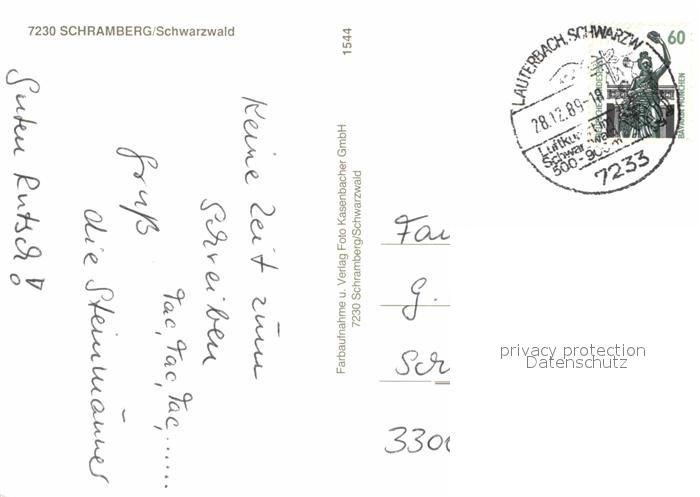 7230 SCHRAMBERG/Schwarzwald
1544
Keine Zeit zum
schreiben
tac, tac, tac,.......
Gruß
die Steinmänner
Guten Rutsch!
Farbaufnahme u. Verlag Foto Kasenbacher GmbH
7230 Schramberg/Schwarzwald
LAUTERBACH, SCHWARZW
28.12.89-18
Luftkurort
Schwarzwald
500-900m
7233
60
BAVARIA MÜNCHEN
Fa
G.
Sch
3300
privacy protection
Datenschutz